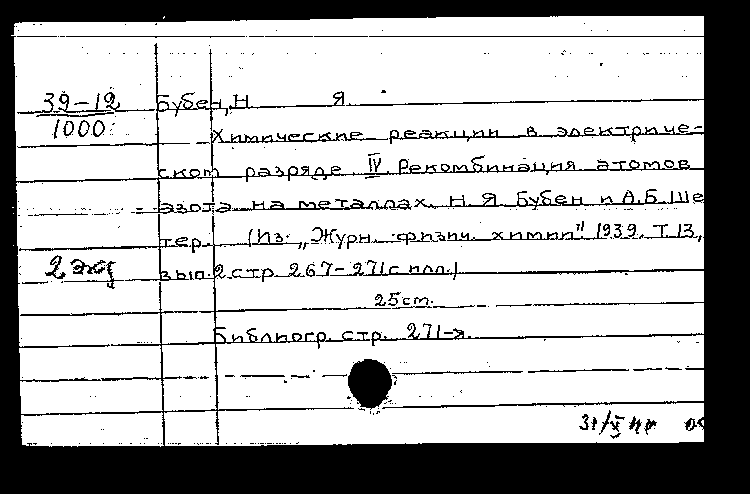 39-12 Бубен, Н Я.
1000
Химические реакции в электриче-
ском разряде IV. Рекомбинация атомов
азота на металлах. Н. Я. Бубен и А.Б. Ше
тер. (Из: „Журн. физич. химии" 1939, Т. 13,
2 экз вып. 2 стр. 267-271 с илл.)
25 ст.
Библиогр. стр. 271-я.
31/X